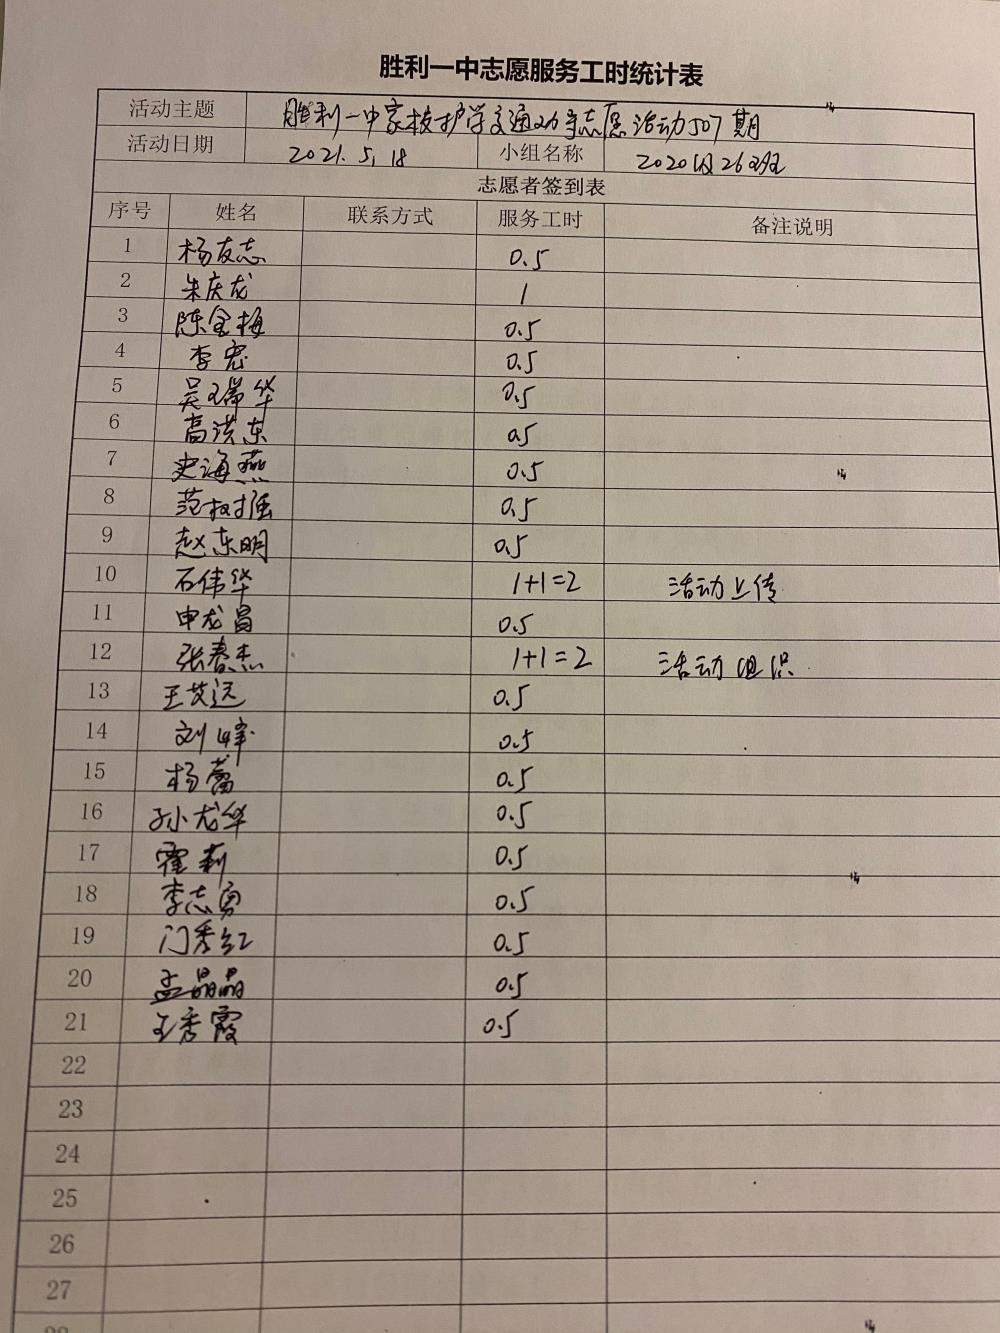 胜利一中志愿服务工时统计表
活动主题 胜利一中家校护学交通劝导志愿活动507期
活动日期 2021.5.18 小组名称 2020级26班
志愿者签到表
序号 姓名 联系方式 服务工时 备注说明
1 杨友志 0.5
2 朱庆龙 1
3 陈金梅 0.5
4 李宏 0.5
5 吴瑞华 0.5
6 高洪东 0.5
7 史海燕 0.5
8 范权 0.5
9 赵东明 0.5
10 石伟华 1+1=2 活动上传
11 申龙昌 0.5
12 张春杰 1+1=2 活动组织
13 王艾远 0.5
14 刘峰 0.5
15 杨蕾 0.5
16 孙龙华 0.5
17 霍莉 0.5
18 李志勇 0.5
19 门秀红 0.5
20 孟晶晶 0.5
21 王秀霞 0.5
22
23
24
25
26
27